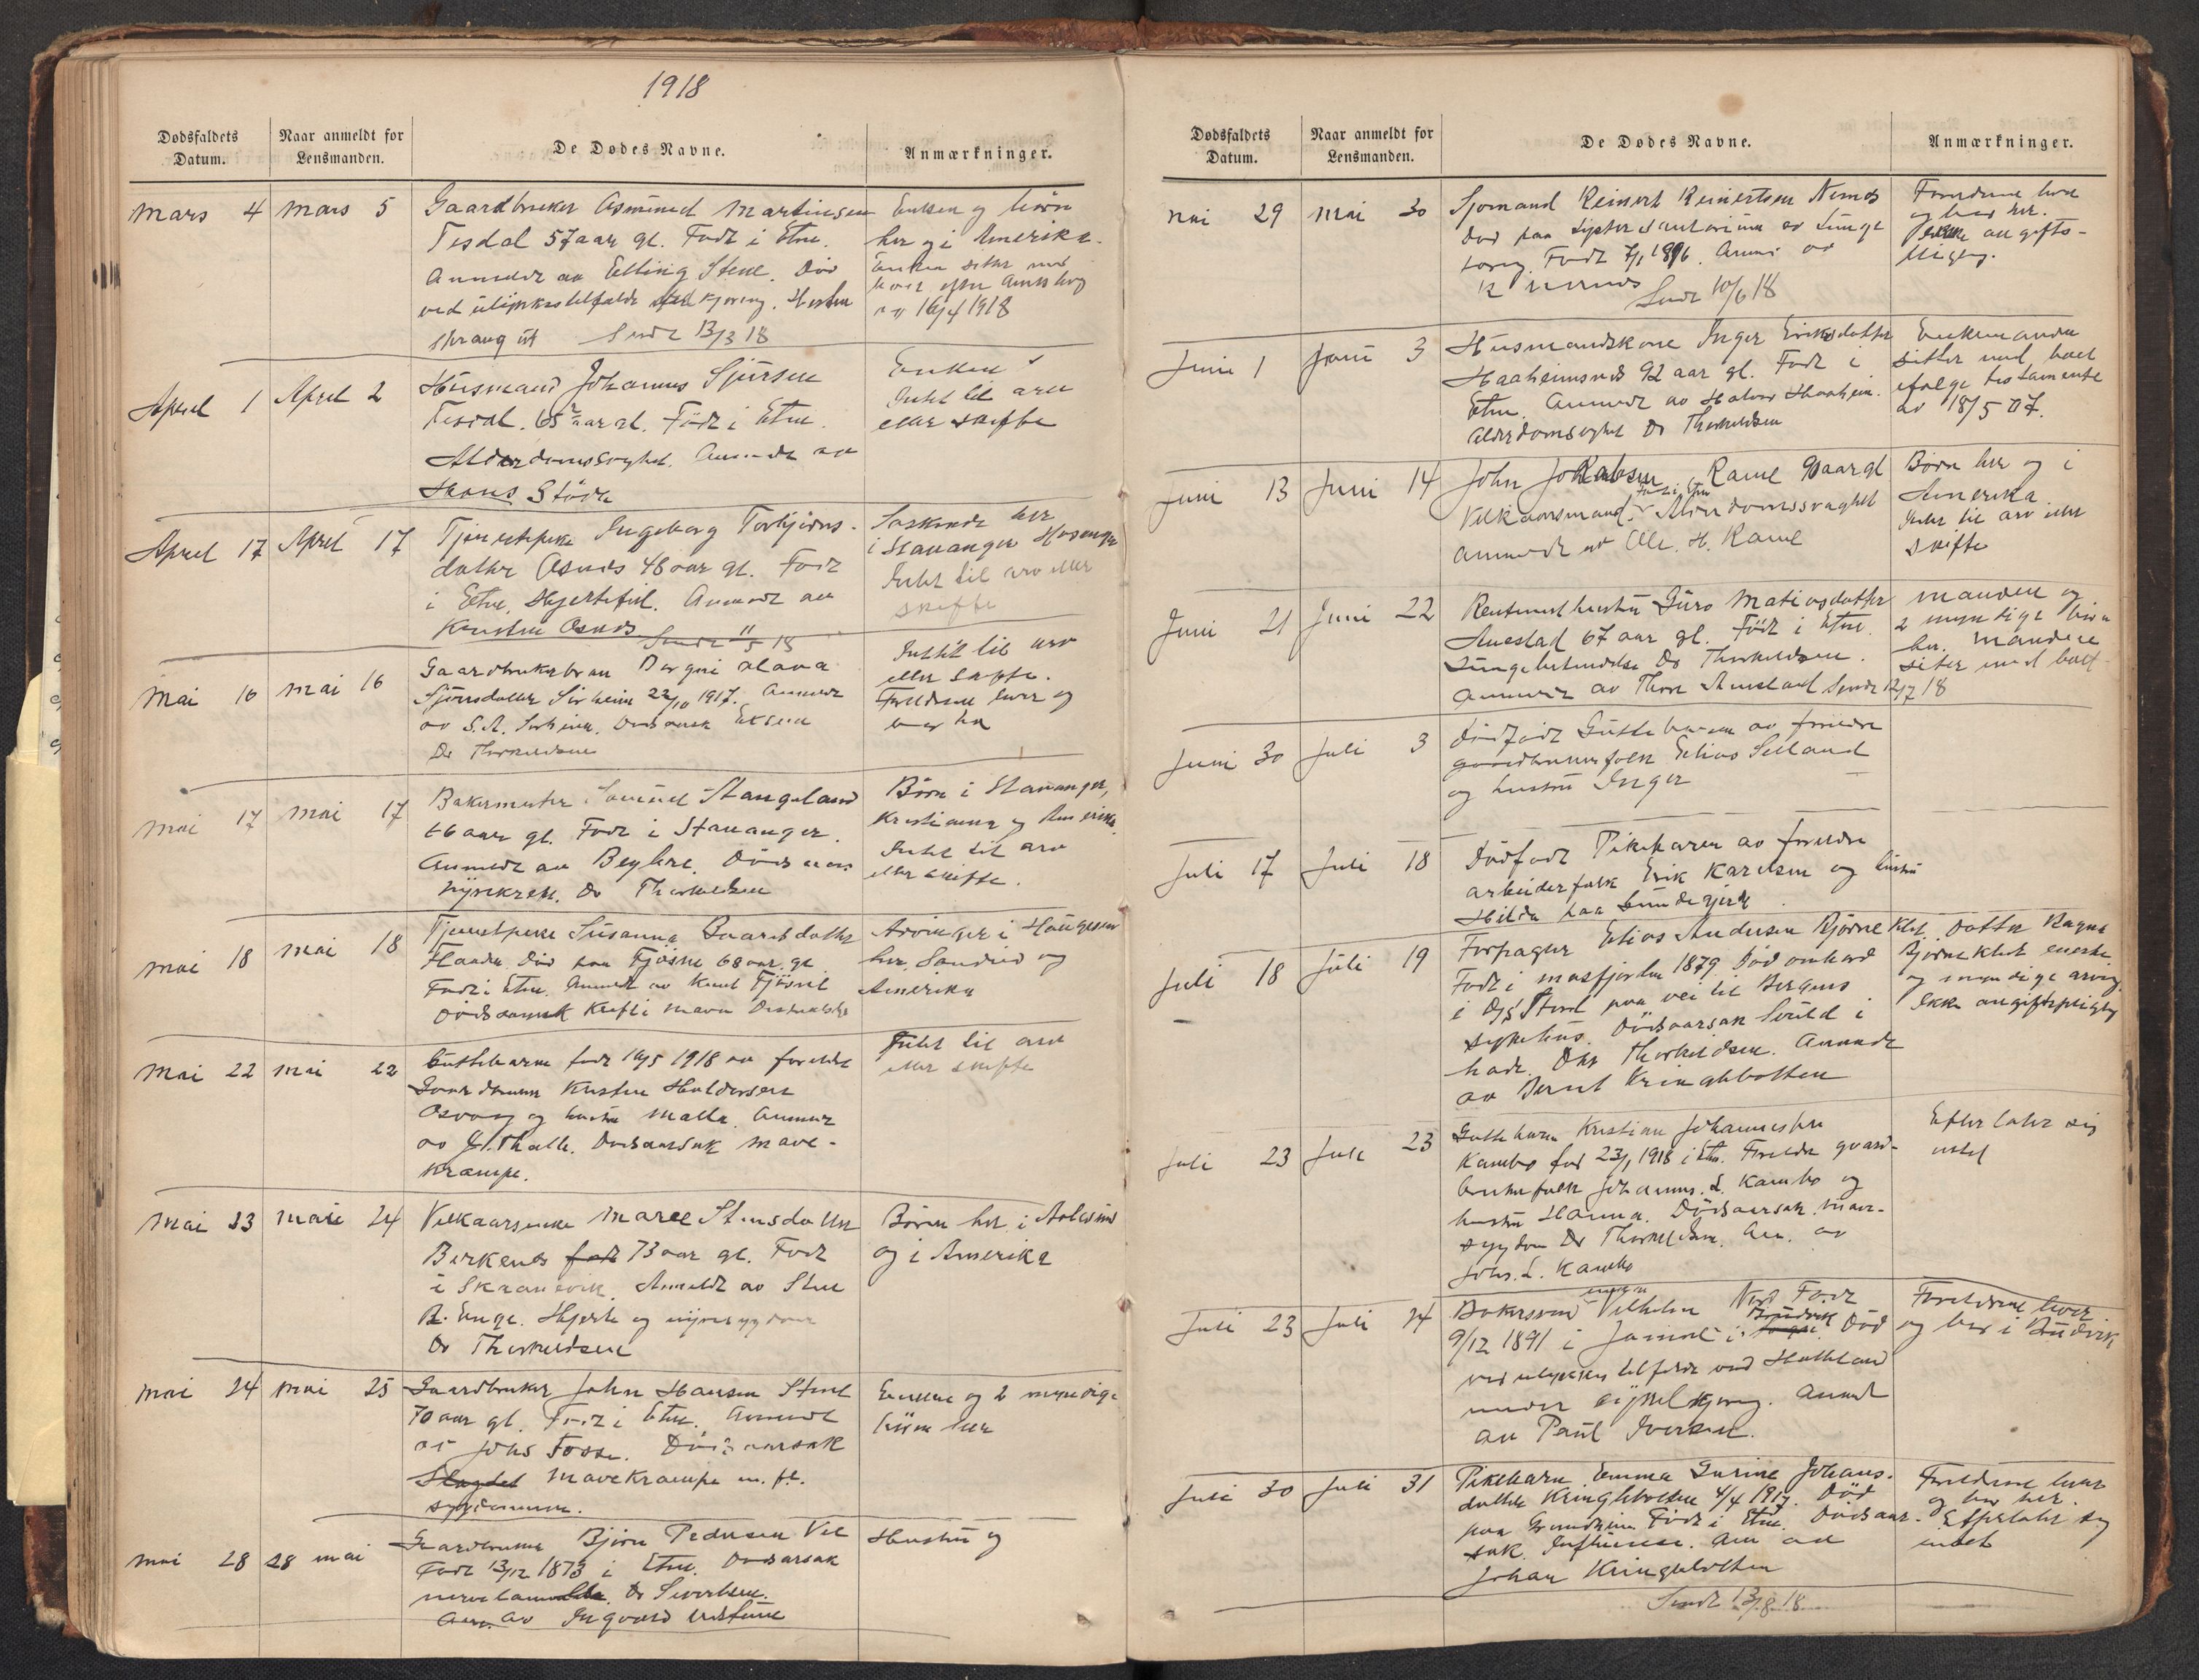 1918
Dødsfaldets Datum.
Naar anmeldt for Lensmanden.
De Dødes Navne.
Anmærkninger.
Mars 4 Mars 5
Gaardbruker Asmund Martinsen
Tesdal 57 aar gl. Født i Etne.
Anmeldt av Elling Stene. Død
ved ulykkestilfælde kjøring. Hesten
sprang ut Sendt 13/3 18
Enken og børn
her og i Amerika.
Enken sitter med
av 16/4 1918
April 1 April 2
Husmand Johannes Sjursen
Tesdal. 65 aar gl. Født i Etne.
Alderdomssvaghet. Anmeldt av
Hans Støle
Enken
Intet til arv
eller skifte
April 17 April 17
Tjenestepike Ingeborg Torbjørns-
datter Osnes 48 aar gl. Født
i Etne. Hjertefeil. Anmeldt av
Kristen Osnes Sendt 11/5 18
Søskende her
i Stavanger
Intet til arv eller
skifte
Mai 16 Mai 16
Gaardbrukerbarn
Sjursdatter 22/10 1917. Anmeldt
av S. A. Dødsaarsak
Dr Thorkeldsen
Intet til arv
eller skifte.
Forældrene lever og
bor her
Mai 17 Mai 17
Bakermester Samuel Stangeland
66 aar gl. Født i Stavanger.
Anmeldt av Dødsaars.
nyrekreft. Dr Thorkeldsen
Børn i Stavanger,
Kristiania og Amerika.
Intet til arv
eller skifte.
Mai 18 Mai 18
Tjenestepike Susanna Baardsdatter
Flaade. Død paa Fjøsne 68 aar gl
Født i Etne. Anmeldt av Knut Fjøsne
Dødsaarsak Kreft i maven
Arvinger i Haugesund
her, Sandeid og
Amerika
Mai 22 Mai 22
Guttebarn født 16/5 1918 av forældre
Gaardbruker Kristen Haldorsen
Osvaag og hustru Malla. Anmeldt
av Dødsaarsak mave-
krampe.
Intet til arv
eller skifte
Mai 23 Mai 24
Vilkaarsenke Maree Stensdatter
Birkenes født 73 aar gl. Født
i Skaanevik. Anmeldt av Sten
B. Enge. Hjerte og nyresygdom
Dr Thorkeldsen
Børn her, i Aalesund
og i Amerika
Mai 24 Mai 25
Gaardbruker John Hansen Stene
70 aar gl. Født i Etne. Anmeldt
av Johs Fosse. Dødsaarsak
Slagtet Mavekrampe m. fl.
sygdomme.
Enken og 2 myndige
børn her
Mai 28 28 mai
Gaardbruker Bjørn Pedersen Vik
Født 13/12 1873 i Etne. Dødsaarsak
Dr Sivertsen.
Anm. av Ingvard
Hustru og
Dødsfaldets Datum.
Naar anmeldt for Lensmanden.
De Dødes Navne.
Anmærkninger.
Mai 29 Mai 30
Sjømand Reinert Reinertsen Nernes
Død paa Lyster Sanatorium av Lunge
tæring. Født 7/1 1896. Anm. av
R Nernes
Sendt 10/6 18
Forældrene lever
og bor her.
Ikke avgifts-
pligtig.
Juni 1 Juni 3
Husmandskone Inger Eriksdatter
Haaheimsnes 92 aar gl. Født i
Etne. Anmeldt av Halvor Haaheim.
Alderdomssvaghet Dr Thorkeldsen
Enkemanden
sitter med boet
ifølge testamente
av 18/5 07.
Juni 13 Juni 14
John Johansen Rame 90 aar gl
Født i Etne
Vilkaarsmand. Alderdomssvaghet
anmeldt av Ole H. Rame
Børn her og i
Amerika.
Intet til arv eller
skifte
Juni 21 Juni 22
Rentenisthustru Guro Matiasdatter
Anestad 67 aar gl. Født i Etne.
Lungebetændelse Dr Thorkeldsen.
Anmeldt av Thore Anestad Sendt 12/7 18
Manden og
2 myndige børn
her. Manden
sitter med boet
Juni 30 Juli 3
Dødfødt Guttebarn av forældre
gaardbrukerfolk Elias Selland
og hustru Inger
Juli 17 Juli 18
Dødfødt Pikebarn av forældre
arbeiderfolk Erik Karlsen og hustru
Hilda paa
Juli 18 Juli 19
Forpagter Elias Andersen Bjørneklet
Født i Masfjorden 1879. Død ombord
i D/S Stord paa vei til Bergens
sykehus. Dødsaarsak
Dr Thorkeldsen. Anmeldt
av Bernt Kringlebotten
Datter Ragna
Bjørneklet eneste
og myndige arving.
Ikke avgiftspligtig
Juli 23 Juli 23
Guttebarn Kristian Johannessen
Kambo født 23/1 1918 i Etne. Forældre gaard-
brukerfolk Johannes L. Kambo og
hustru Hanna. Dødsaarsak mave-
sygdom Dr Thorkeldsen. Anm. av
Johs. L. Kambo
Efterlater sig
intet
Juli 23 Juli 24
Bakersvend Vilhelm Født
9/12 1891 i Død
ved ulykkestilfælde ved Hatteland
under sykkelkjøring. Anmeldt
av Paul Iversen.
Forældrene lever
og bor i
Juli 30 Juli 31
Pikebarn Emma Gurine Johans-
datter Kringlebotten 4/4 1917. Død
paa Grindheim Født i Etne. Dødsaar-
sak. Influensa. Anm av
Johan Kringlebotten
Sendt 13/8 18
Forældrene lever
og bor her.
Efterlater sig
intet